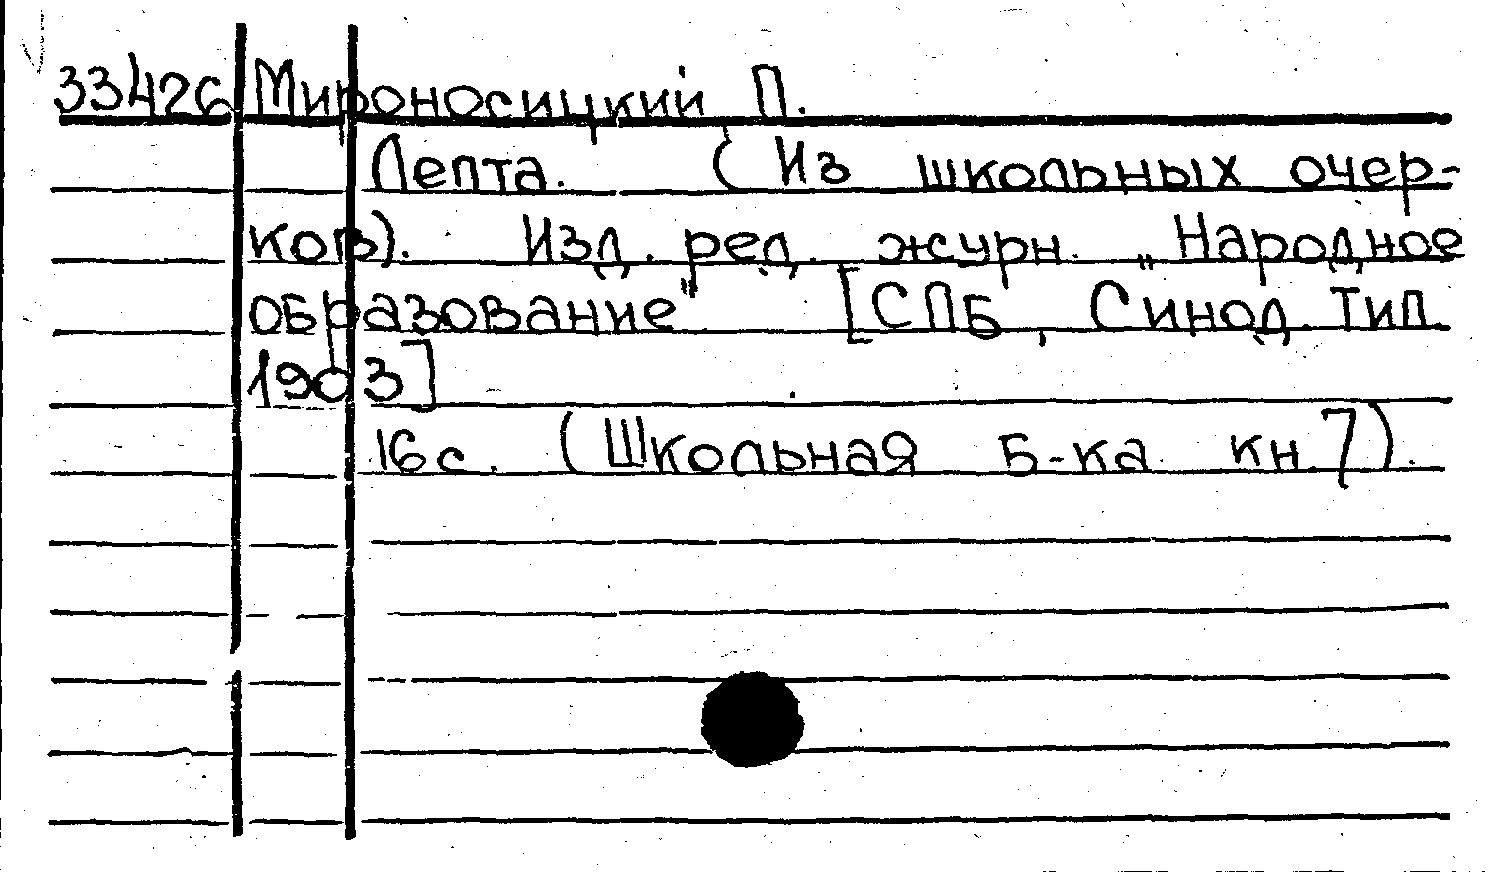 33426 Мироносицкий П.
Лепта. (Из школьных очер-
ков). Изд. ред. журн. „Народное
образование" [СПБ, Синод. тип.
1903]
16 с. (Школьная Б-ка кн. 7).